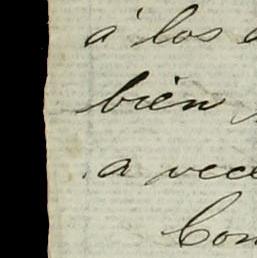 á los
bien
a vece
Con